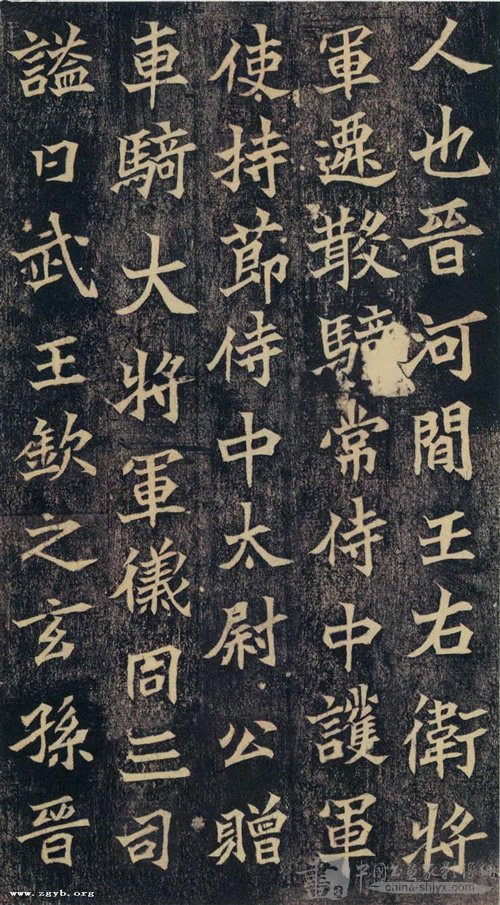 人也晉河間王右衛將
軍遷散騎常侍中護軍
使持節侍中太尉公贈
車騎大將軍儀同三司
謚曰武王欽之玄孫晉
www.zgyb.org
china-shiyx.com